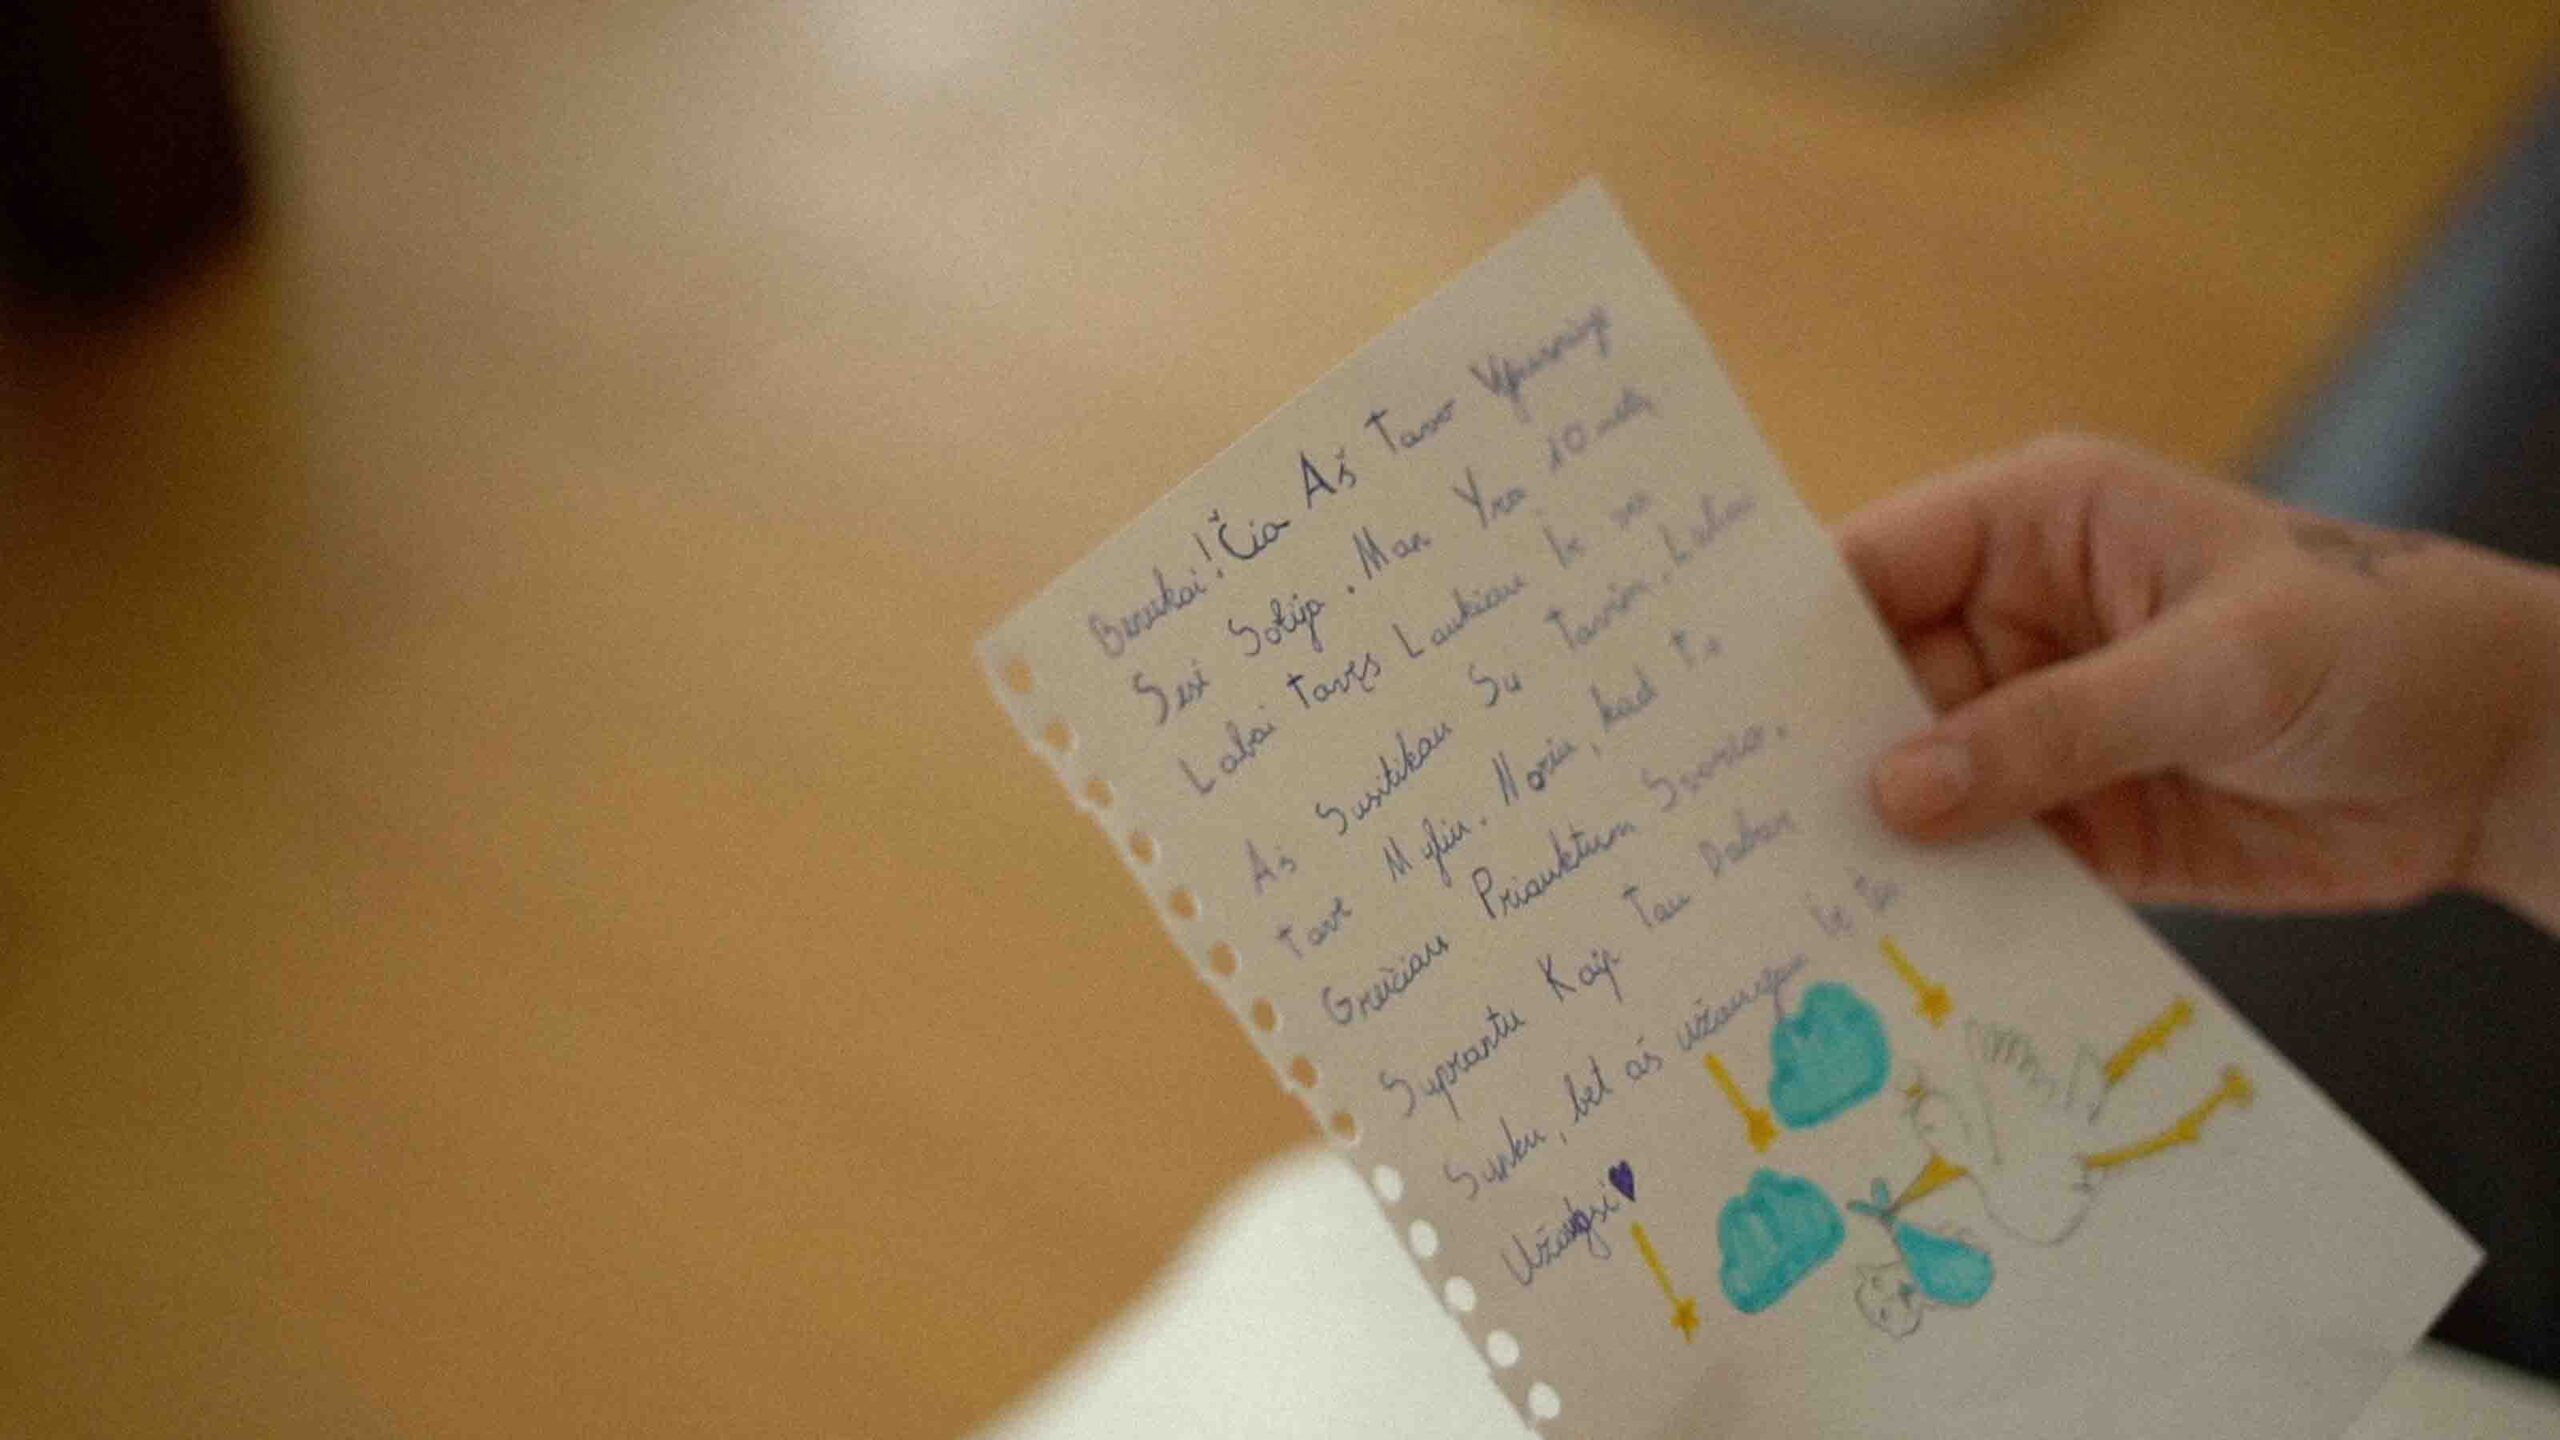 Berukai! Čia Aš Tavo Vyresnioji
Sesė Sofija. Man Yra 10 metų
Labai Tavęs Laukiau Ir va
Aš Susitikau Su Tavim. Labai
Tave Myliu. Noriu, kad Tu
Greičiau Priauktum Svorio.
Suprantu Kaip Tau Dabar
Sunku, bet aš užaugau Ir Tu
Užaugsi